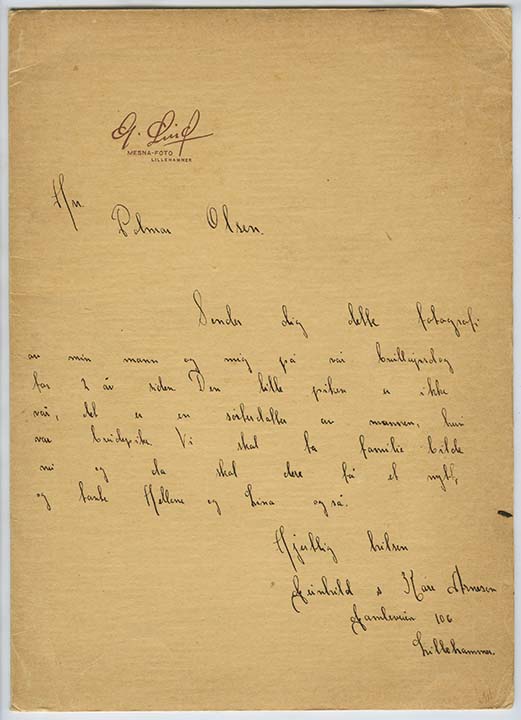 G. Lind
MESNA-FOTO
LILLEHAMMER
Hr.
Palmar Olsen.
Sender dig dette fotografi
av min mann og mig på vår bryllupsdag
for 2 år siden Den lille piken er ikke
vår, det er en søsterdatter av mannen, hun
var brudepike. Vi skal ta familie bilde
nu og da skal dere få et nytt,
og tante Hellene og Lina også.
Hjertlig hilsen
& Kåre Arnesen
Gamleveien 106
Lillehammer